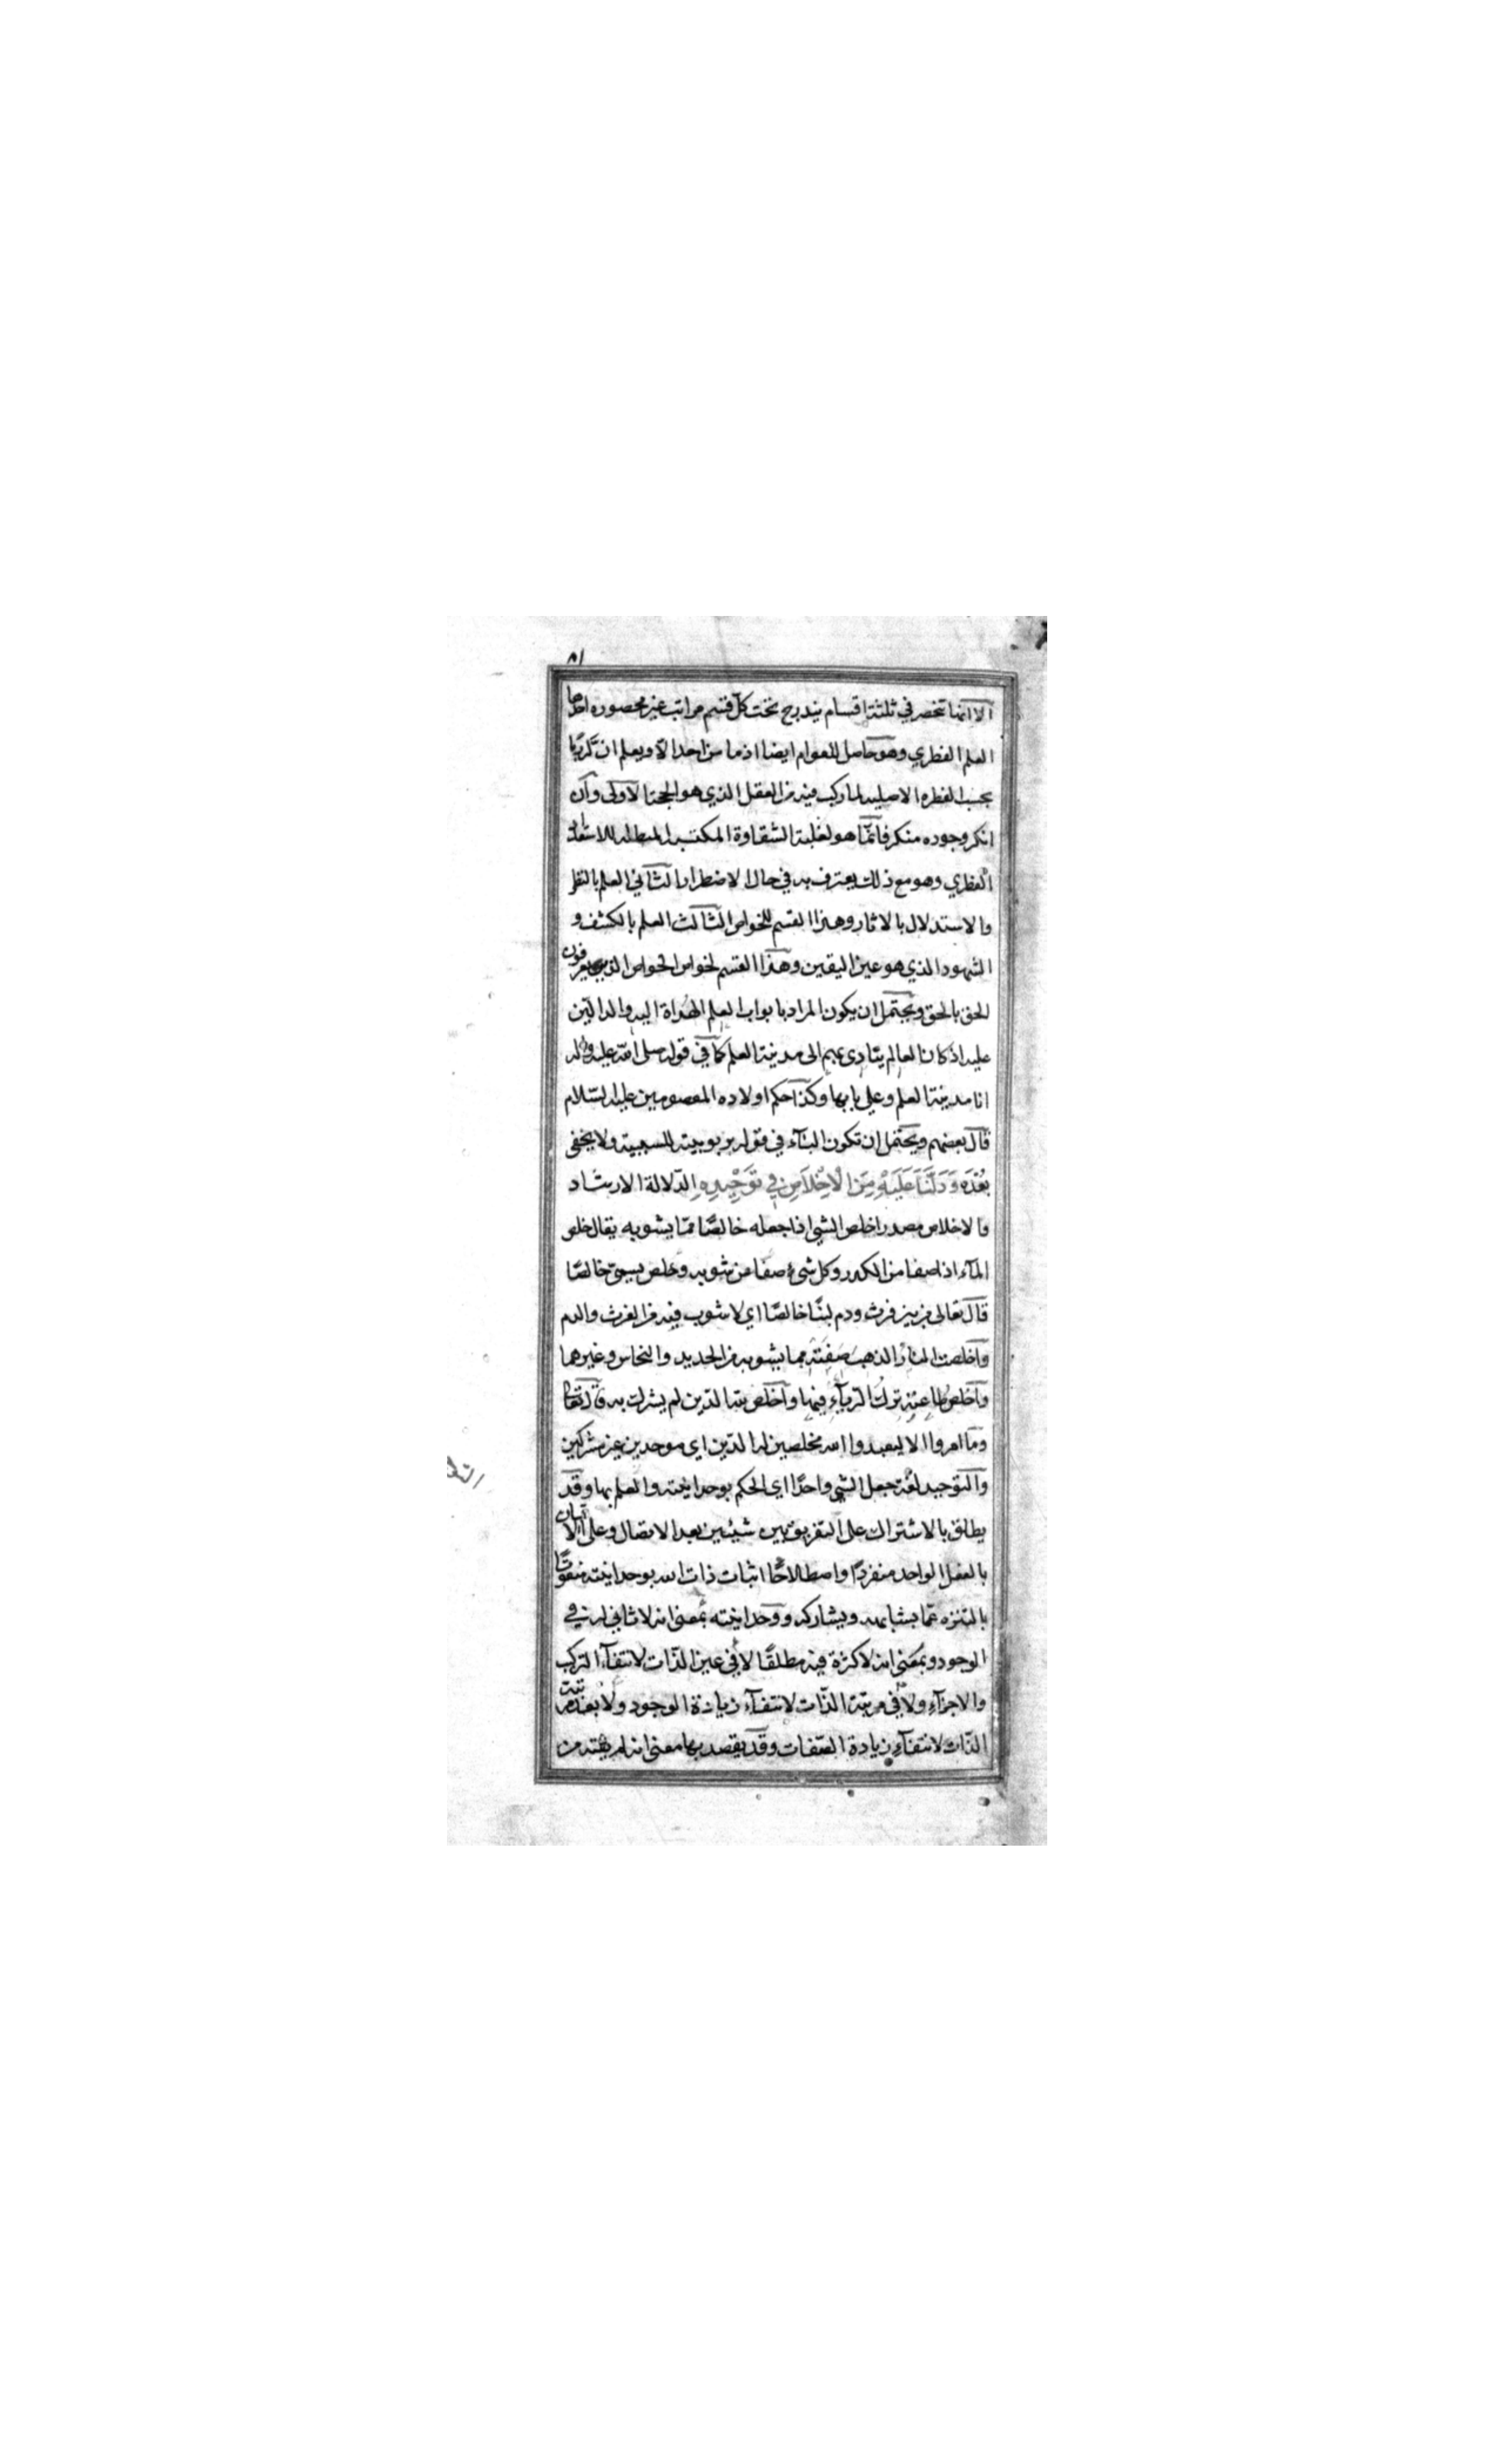 ٨١
الا انها تنحصر في ثلثة اقسام يندرج تحت كل قسم مراتب غير محصوره احدها
العلم الفطري وهو حاصل للعوام ايضا اذ ما من احد الا ويعلم ان له ربا
بحسب الفطره الاصليه لما ركب فيه من العقل الذي هو الحجة الاولى وان
انكر وجوده منكر فانما هو لغلبة الشقاوة المكتسبة المبطلة للاستعداد
الفطري وهو مع ذلك يعترف به في حال الاضطرار الثاني العلم بالنظر
والاستدلال بالاثار وهذا القسم للخواص الثالث العلم بالكشف و
الشهود الذي هو عين اليقين وهذا القسم لخواص الخواص الذين يعرفون
الحق بالحق ويحتمل ان يكون المراد بابواب العلم الهداة اليه والدالين
عليه اذ كان العالم يتادى بهم الى مدينة العلم كما في قوله صلى الله عليه واله
انا مدينة العلم وعلي بابها وكذا حكم اولاده المعصومين عليهم السلام
قال بعضهم ويحتمل ان تكون الباء في قوله بربوبيته للسببية ولا يخفى
بعده وَدَلَّنَا عَلَيْهِ مِنَ الْاِخْلَاصِ فِي تَوْحِيدِهِ الدلالة الارشاد
والاخلاص مصدر اخلص الشي اذا جعله خالصًا مما يشوبه يقال خلص
الماء اذا صفا من الكدر وكل شيء صفا عن شوبه وخلص يسمى خالصًا
قال تعالى من بين فرث ودم لبنًا خالصًا اي لا شوب فيه من الفرث والدم
واخلصت النار الذهب صفته مما يشوبه من الحديد والنحاس وغيرهما
واخلص طاعته ترك الرياء فيها واخلص لله الدين لم يشرك به قال تعالى
وما امروا الا ليعبدوا الله مخلصين له الدين اي موحدين غير مشركين
والتوحيد لغة جعل الشي واحدًا اي الحكم بوحدانيته والعلم بها وقد
يطلق بالاشتراك على التفريق بين شيئين بعد الاتصال وعلى الاتيان
بالفعل الواحد منفردًا واصطلاحًا اثبات ذات الله بوحدانيته منعوتًا
بالتنزه عما يشابهه ويشاركه ووحدانيته بمعنى انه لا ثاني له في
الوجود وبمعنى انه لا كثرة فيه مطلقًا لا في عين الذات لانتفاء التركب
والاجزاء ولا في مرتبة الذات لانتفاء زيادة الوجود ولا بعد مرتبة
الذات لانتفاء زيادة الصفات وقد يقصد بها معنى انه لم يفته من